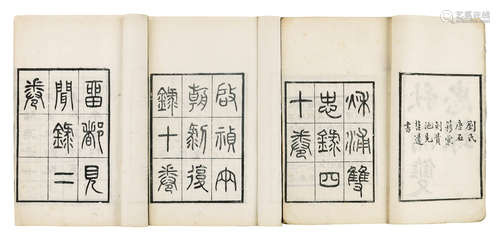 劉氏
唐石
簃彙
刻貴
池先
哲遺
書
秋浦雙
忠錄四
十卷
啟禎兩
朝剝復
錄十卷
留都見
聞錄二
卷